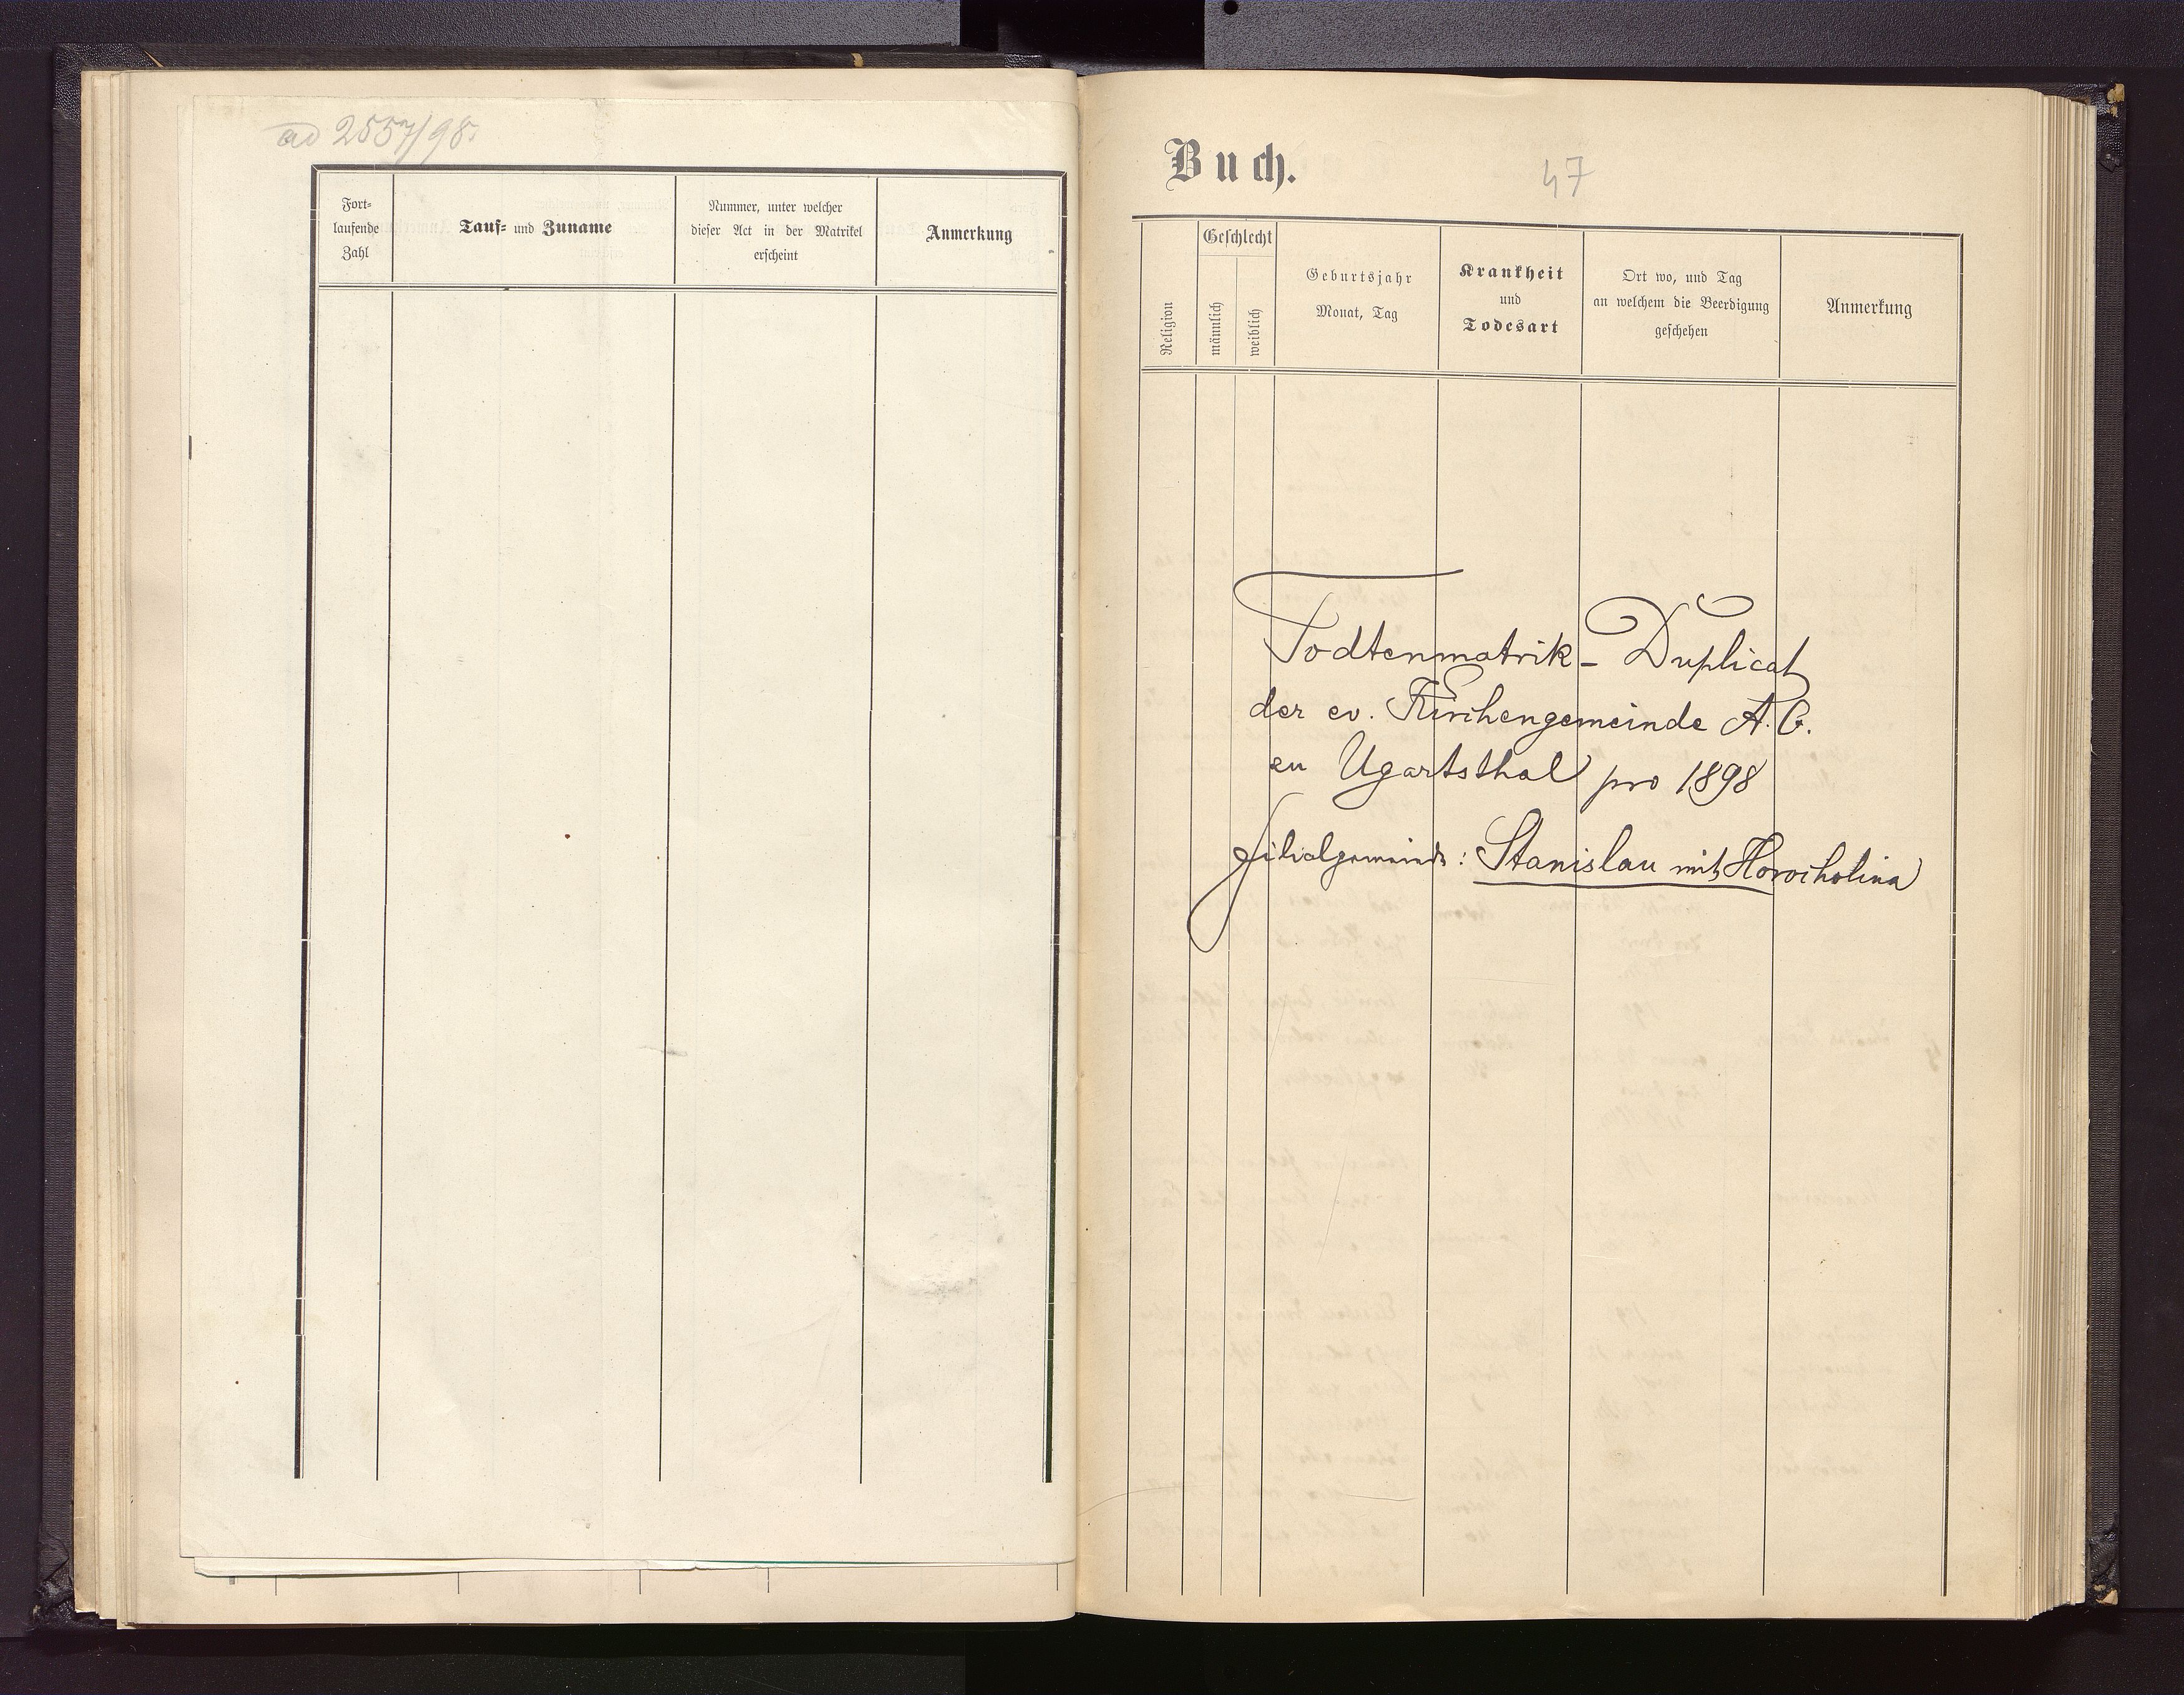 ad 2557/98.
Fort-
laufende
Zahl
Tauf- und Zuname
Nummer, unter welcher
dieser Act in der Matrikel
erscheint
Anmerkung
Buch.
47
Religion
Geschlecht
männlich
weiblich
Geburtsjahr
Monat, Tag
Krankheit
und
Todesart
Ort wo, und Tag
an welchem die Beerdigung
geschehen
Anmerkung
Todtenmatrik-Duplicat
der ev. Kirchengemeinde A. C.
zu Ugartsthal pro 1898
Filialgemeinde: Stanislau mit Horocholina